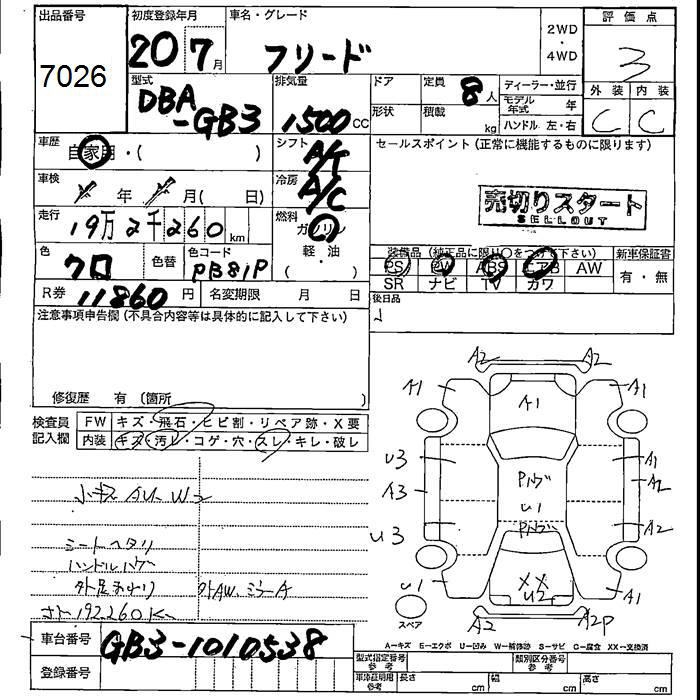 出品番号
7026
初度登録年月
20 7月
車名・グレード
フリード
2WD
・
4WD
評価点
3
外装 内装
C C
型式
DBA
-GB3
排気量
1500 CC
ドア
定員
8人
形状
積載
kg
ディーラー・並行
モデル年式 年
ハンドル 左・右
車歴
自家用・( )
シフト
A/T
セールスポイント(正常に機能するものに限ります)
車検
年 月( 日)
冷房
A/C
売切りスタート
SELLOUT
走行
19万2千260km
燃料
ガソリン
軽・油
( )
色
クロ
色替
色コード
PB81P
装備品(純正品に限り○をつけて下さい)
PS PW ABS エアB AW
SR ナビ TV カワ
新車保証書
有・無
R券
11860円
名変期限 月 日
後日品
注意事項申告欄(不具合内容等は具体的に記入して下さい)
修復歴 有(箇所 )
検査員
記入欄
FW キズ・飛石・ヒビ割・リペア跡・X要
内装 キズ・汚レ・コゲ・穴・スレ・キレ・破レ
小キズ AU W2
シートヘタリ
ハンドルハゲ
外足まわり
外AW、ミラーA
192260K
A2 A2
A1 A1 A1
U3 A1
Pハゲ
A3 A2
U1
U3 Pハゲ A2
XX
U1 U2 A1
スペア
A2 A2P
A=キズ E=エクボ U=凹み W=補修跡 S=サビ C=腐食 XX=交換済
車台番号
GB3-1010538
登録番号
型式指定番号
参考
類別区分番号
参考
車庫証明用
参考
長さ cm 幅 cm 高さ cm